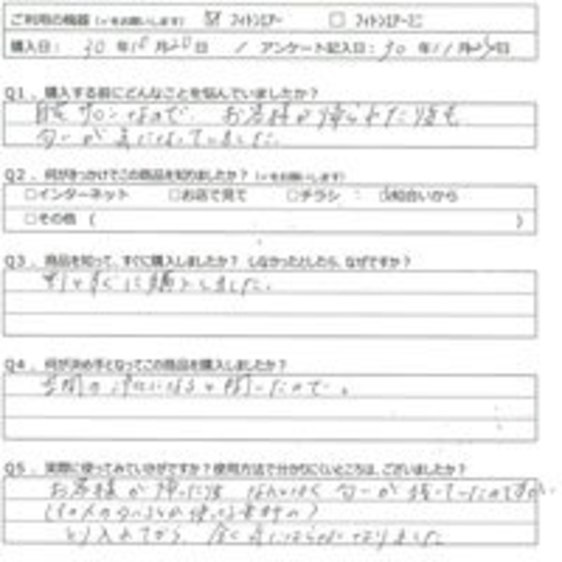 ご利用の機器（✓をお願いします） ☑ フィトンエアー □ フィトンエアーミニ
購入日： 30 年10月20日 / アンケート記入日：30年11月 日
Q1．購入する前にどんなことを悩んでいましたか？
サロンなので、お客様が帰られた後も
匂いが気になっていました。
Q2．何がきっかけでこの商品を知りましたか？（✓をお願いします）
□インターネット □お店で見て □チラシ ☑知合いから
□その他（ ）
Q3．商品を知って、すぐに購入しましたか？ しなかったとしたら、なぜですか？
わりとすぐに購入しました。
Q4．何が決め手となってこの商品を購入しましたか？
空間が になると聞いたので。
Q5．実際に使ってみていかがですか？使用方法で分かりにくいところは、ございましたか？
お客様が帰った後 なんとなく匂いが残っていたのですが
とり入れてから、全く気にならなくなりました